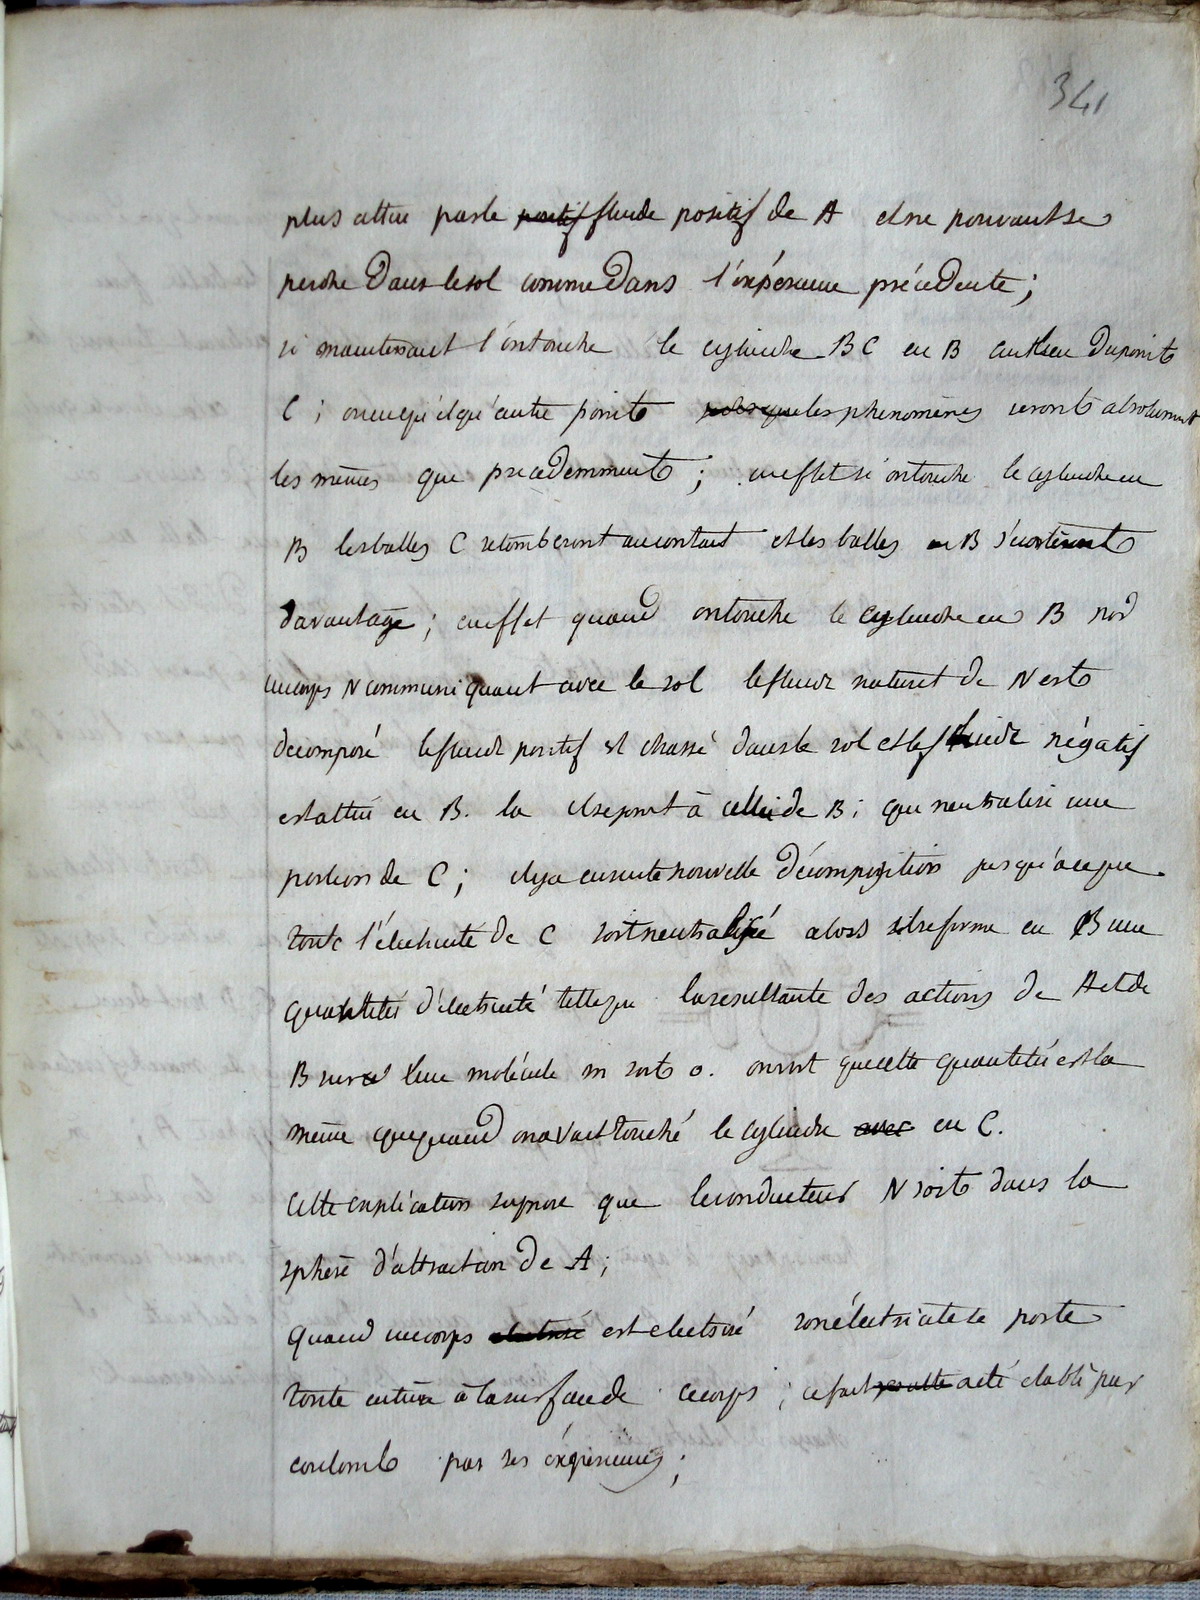 341
plus attiré par le positif fluide positif de A et ne pouvant se
perdre dans le sol comme dans l'expérience précédente ;
si maintenant l'on touche le cylindre BC en B au lieu du point
C ; ou en quelqu'autre point les phenomènes seront absolument
les mêmes que precedemment ; en effet si on touche le cylindre en
B les balles C retomberont au contact et les balles en B s'écarteront
davantage ; en effet quand on touche le cylindre en B par
un corps N communiquant avec le sol le fluide naturel de N est
decomposé le fluide positif est chassé dans le sol et le fluide négatif
est attiré en B. la il se joint à celui de B ; qui neutralise une
portion de C ; il y a ensuite nouvelle décomposition jusqu'à ce que
toute l'électricité de C soit neutralisé alors il se forme en B une
quantité d'électricité telle que la resultante des actions de A et de
B sur une molécule m soit o. on voit que cette quantité est la
même que quand on avait touché le cylindre avec en C.
Cette explication supose que le conducteur N soit dans la
sphere d'attraction de A ;
Quand un corps electrisé est electrisé son électricité se porte
toute entière à la surface de ce corps ; ce fait resulte a été etabli par
coulomb par ses éxpériences ;